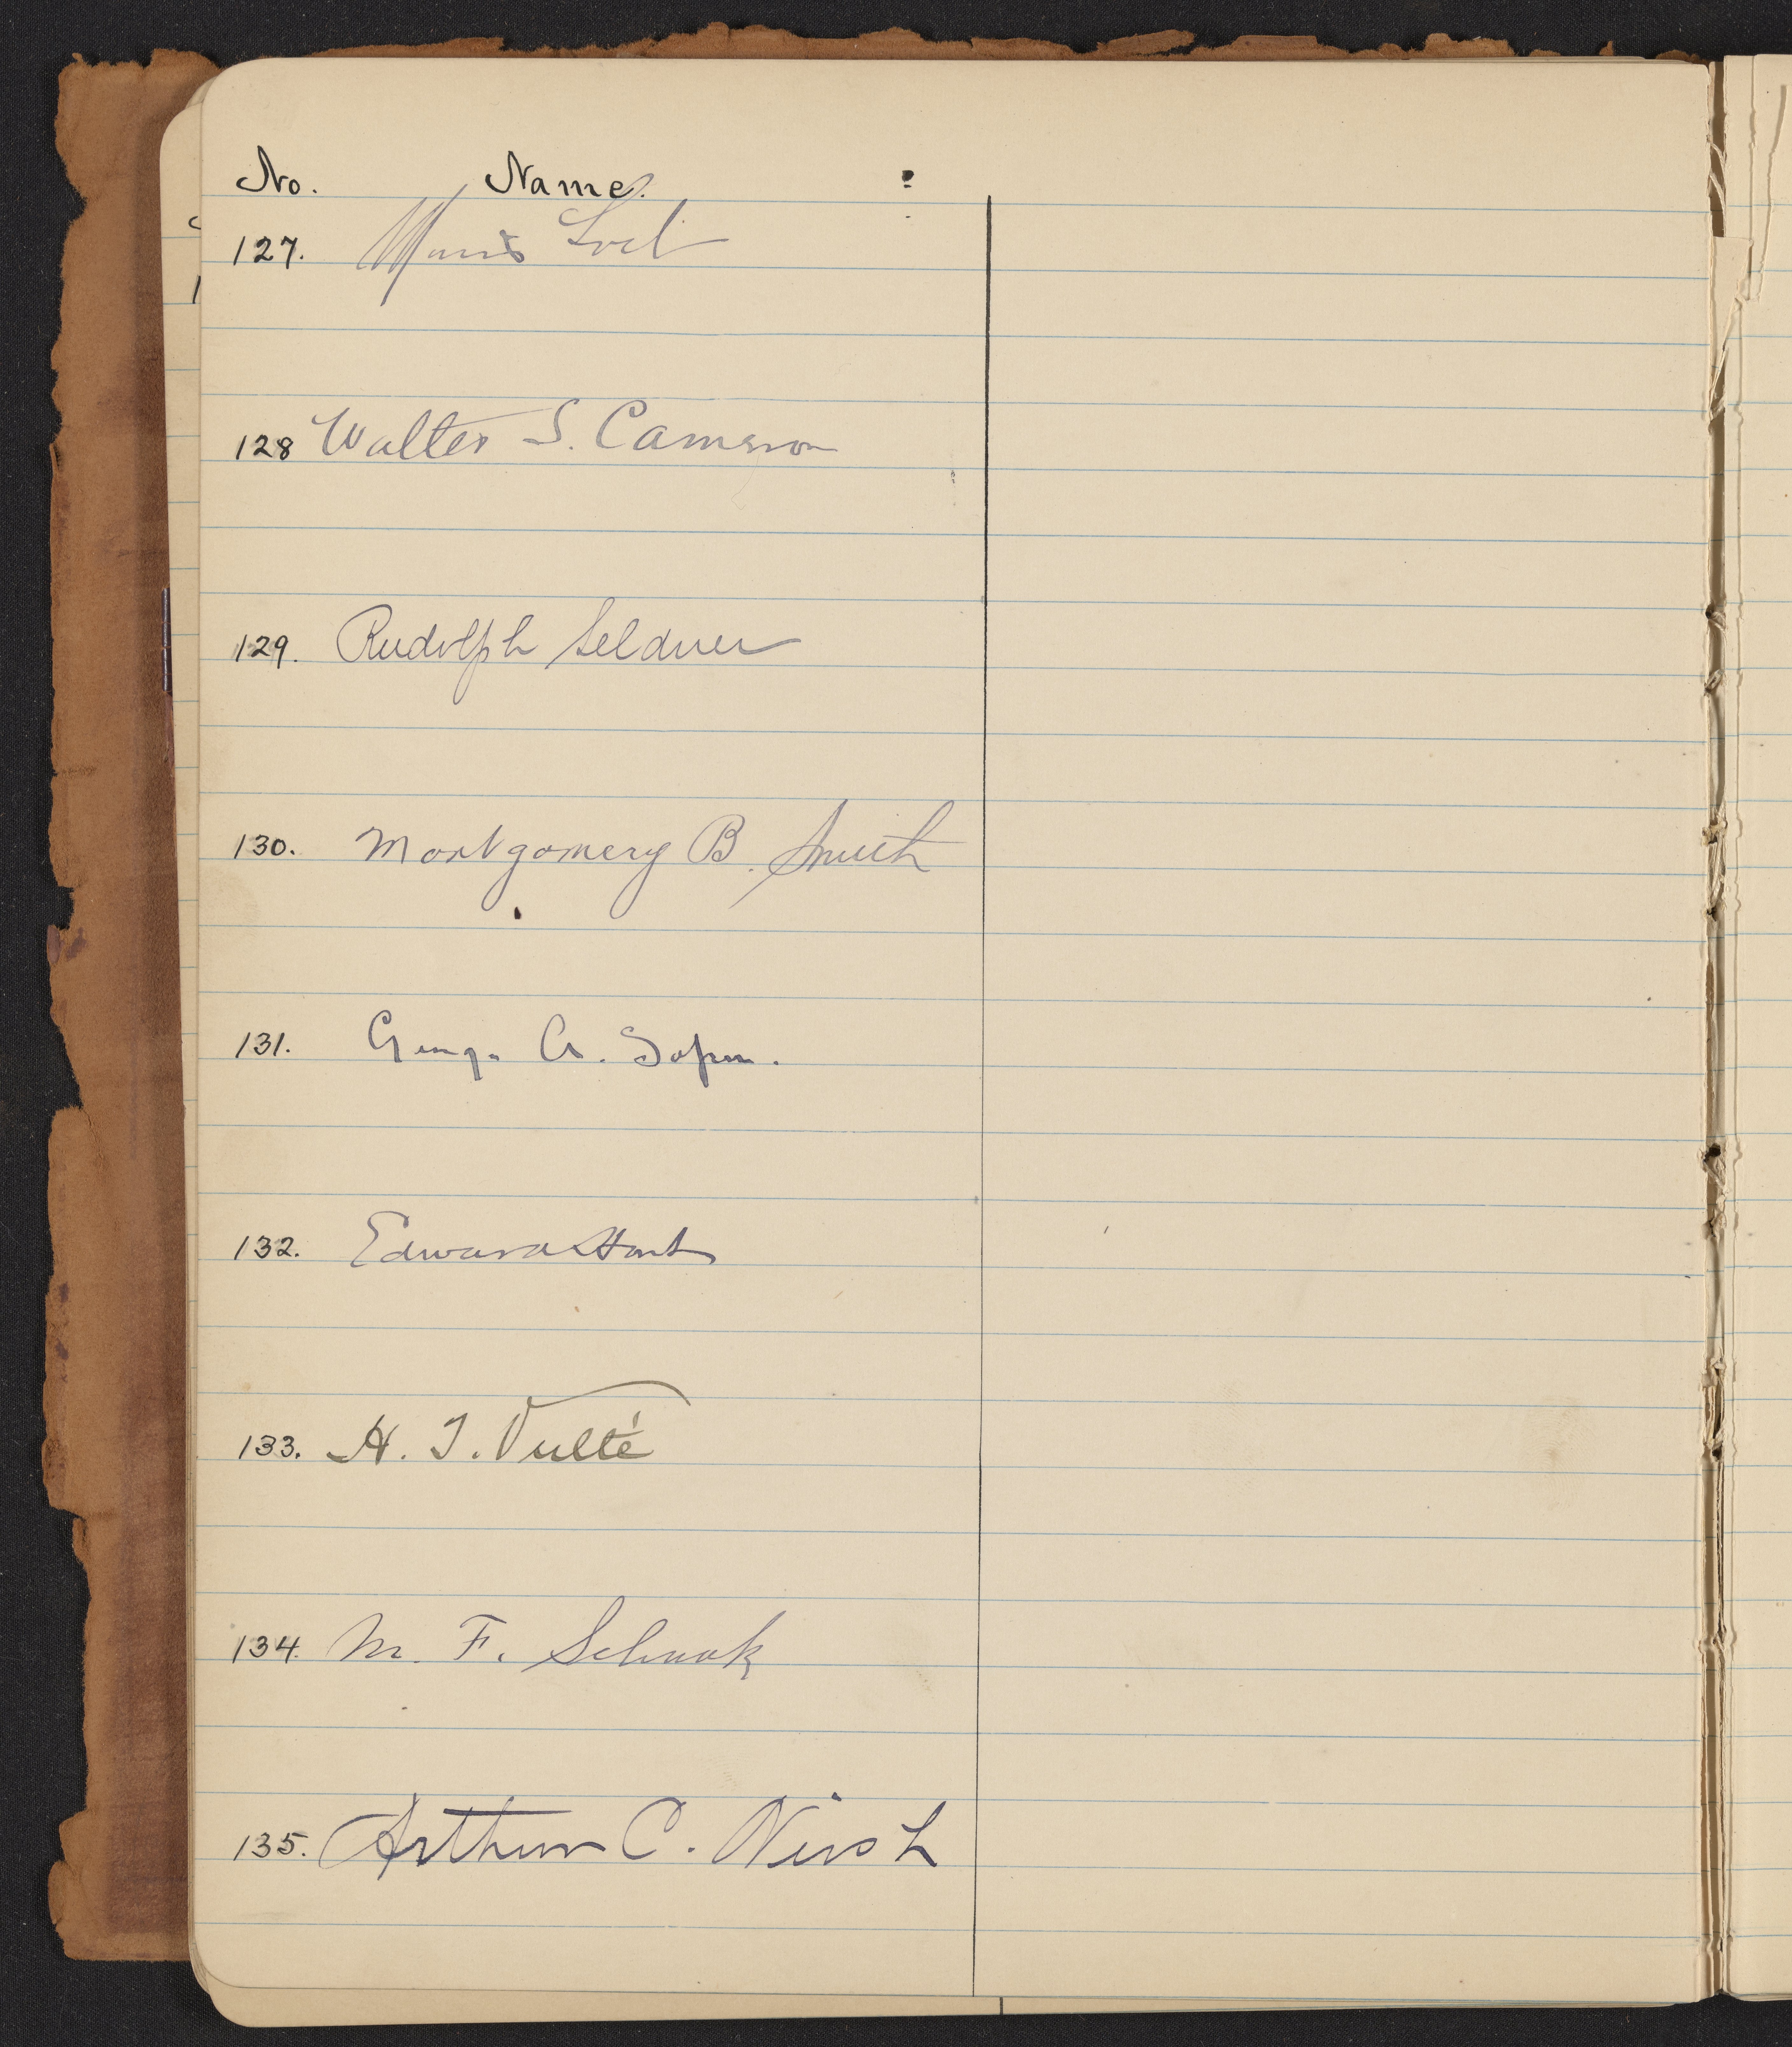 No. Name.
127. Morris Loeb
128 Walter S. Cameron
129. Rudolph Seldner
130. Montgomery B. Smith
131. George A. Soper.
132. Edward Hart
133. H. T. Vulté
134. M. F. Schaak
135. Arthur C. Neish